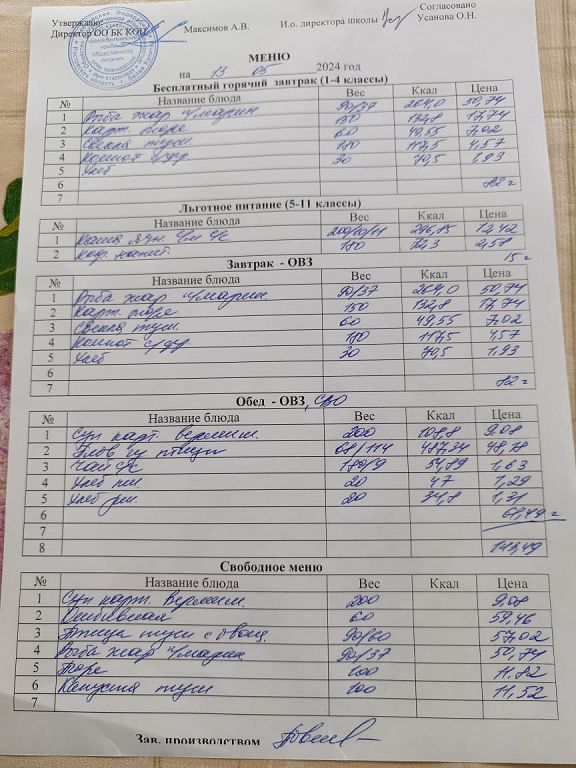 Утверждаю:
Директор ОО БК КОН Максимов А.В. И.о. директора школы
Согласовано
Усанова О.Н.
МЕНЮ
на 13 05 2024 год
Бесплатный горячий завтрак (1-4 классы)
№ Название блюда Вес Ккал Цена
1 Рыба жар ч/марин. 90/37 264,0 50,74
2 Карт. пюре 150 132,8 17,74
3 Свекла туш. 60 49,55 7,02
4 Компот с/фр. 180 117,5 4,57
5 Хлеб 30 70,5 1,93
6
7 82 г
Льготное питание (5-11 классы)
№ Название блюда Вес Ккал Цена
1 Каша ячн. 200/10/11 296,85 12,42
2 Коф. напит. 180 72,3 2,58
15 г
Завтрак - ОВЗ
№ Название блюда Вес Ккал Цена
1 Рыба жар ч/марин. 90/37 264,0 50,74
2 Карт. пюре 150 132,8 17,74
3 Свекла туш. 60 49,55 7,02
4 Компот с/фр. 180 117,5 4,57
5 Хлеб 30 70,5 1,93
6
7 82 г
Обед - ОВЗ, СВО
№ Название блюда Вес Ккал Цена
1 Суп карт. вермиш. 200 108,8 9.08
2 Плов с/ птицы 68/114 487,34 48,18
3 Чай с/с 180/9 54,89 1,63
4 Хлеб пш 20 47 1,29
5 Хлеб рж. 20 34,8 1,31
6 61,49 г
7
8 143,49
Свободное меню
№ Название блюда Вес Ккал Цена
1 Суп карт. вермиш. 200 9.08
2 60 59,46
3 Птица туш с овощ. 90/60 57,02
4 Рыба жар ч/марин 90/37 50,74
5 Пюре 100 11.82
6 Капуста туш 100 11,52
7
Зав. производством